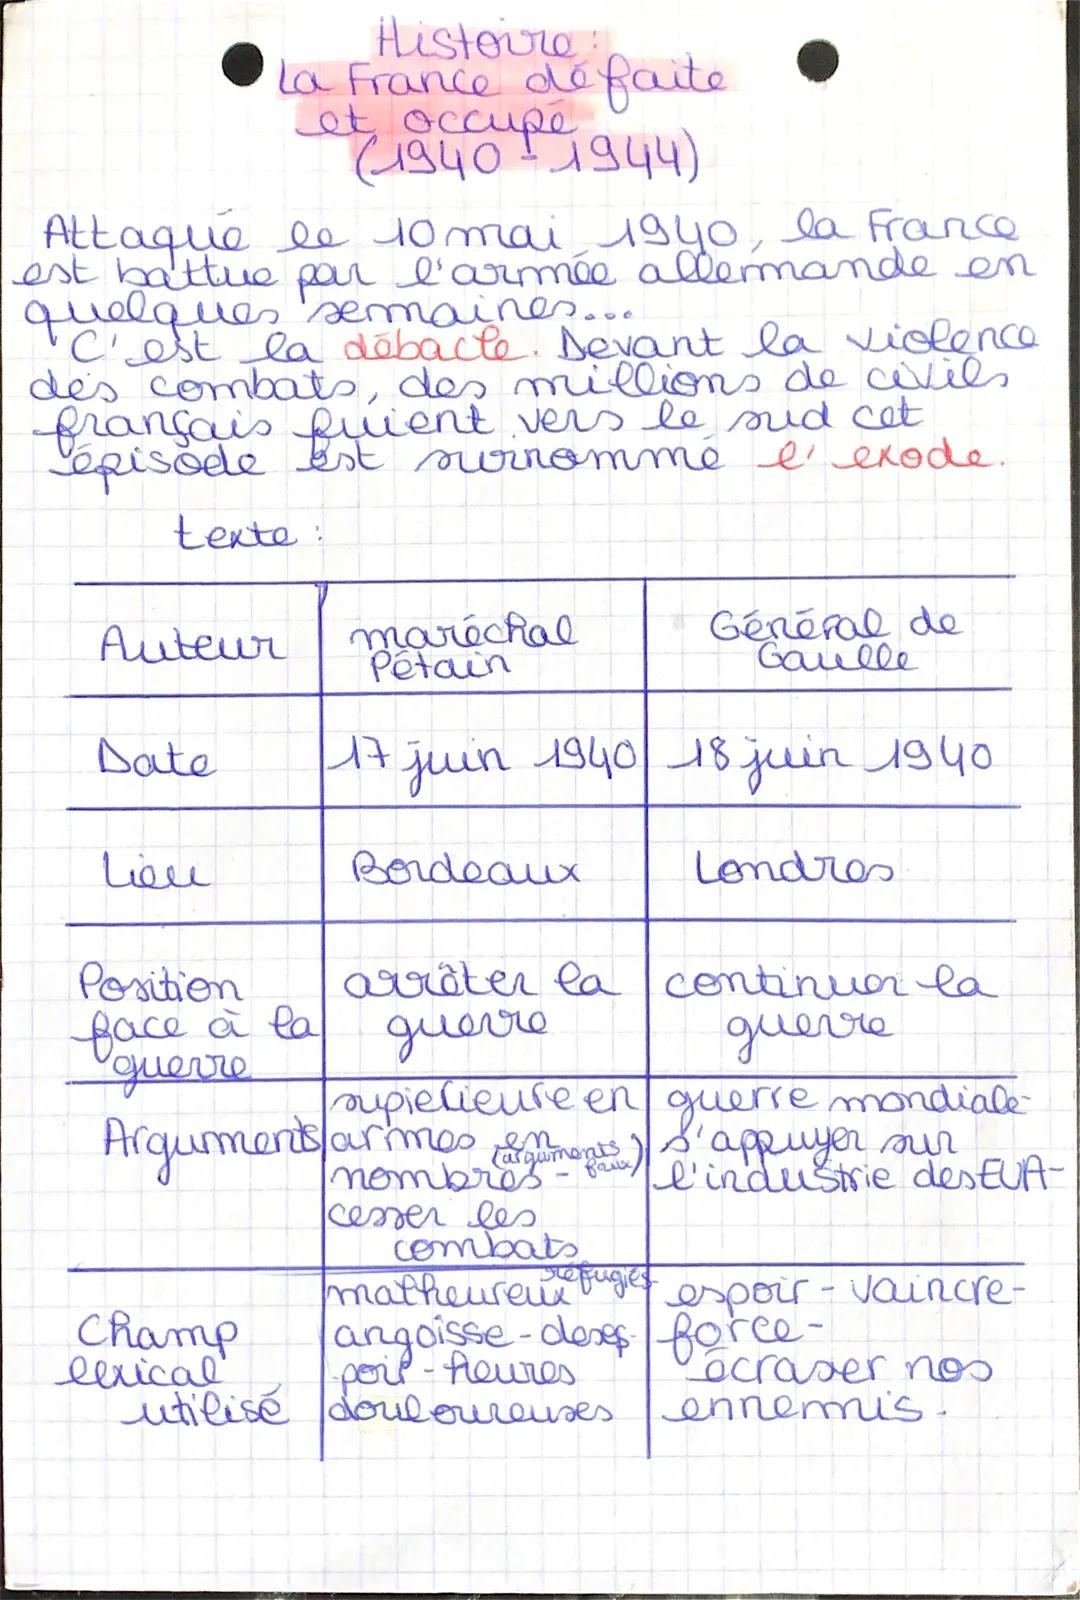 Histoire :
La France défaite
et occupé
(1940 - 1944)
Attaqué le 10 mai 1940, la France
est battue par l'armée allemande en
quelques semaines...
C'est la débacle. Devant la violence
des combats, des millions de civils
français fuient vers le sud cet
épisode est surnommé l'exode.
texte :
Auteur
maréchal
Pétain
Général de
Gaulle
Date
17 juin 1940
18 juin 1940
Lieu
Bordeaux
Londres
Position
face à la
guerre
arrêter la
guerre
continuer la
guerre
Arguments
supielieure en
armes en
nombres - (arguments faux)
cesser les
combats
guerre mondiale-
s'appuyer sur
l'industrie des EUA-
Champ
lexical
utilisé
malheureux réfugiés-
angoisse - deses-
poir - heures
douloureuses
espoir - vaincre-
force-
écraser nos
ennemis.